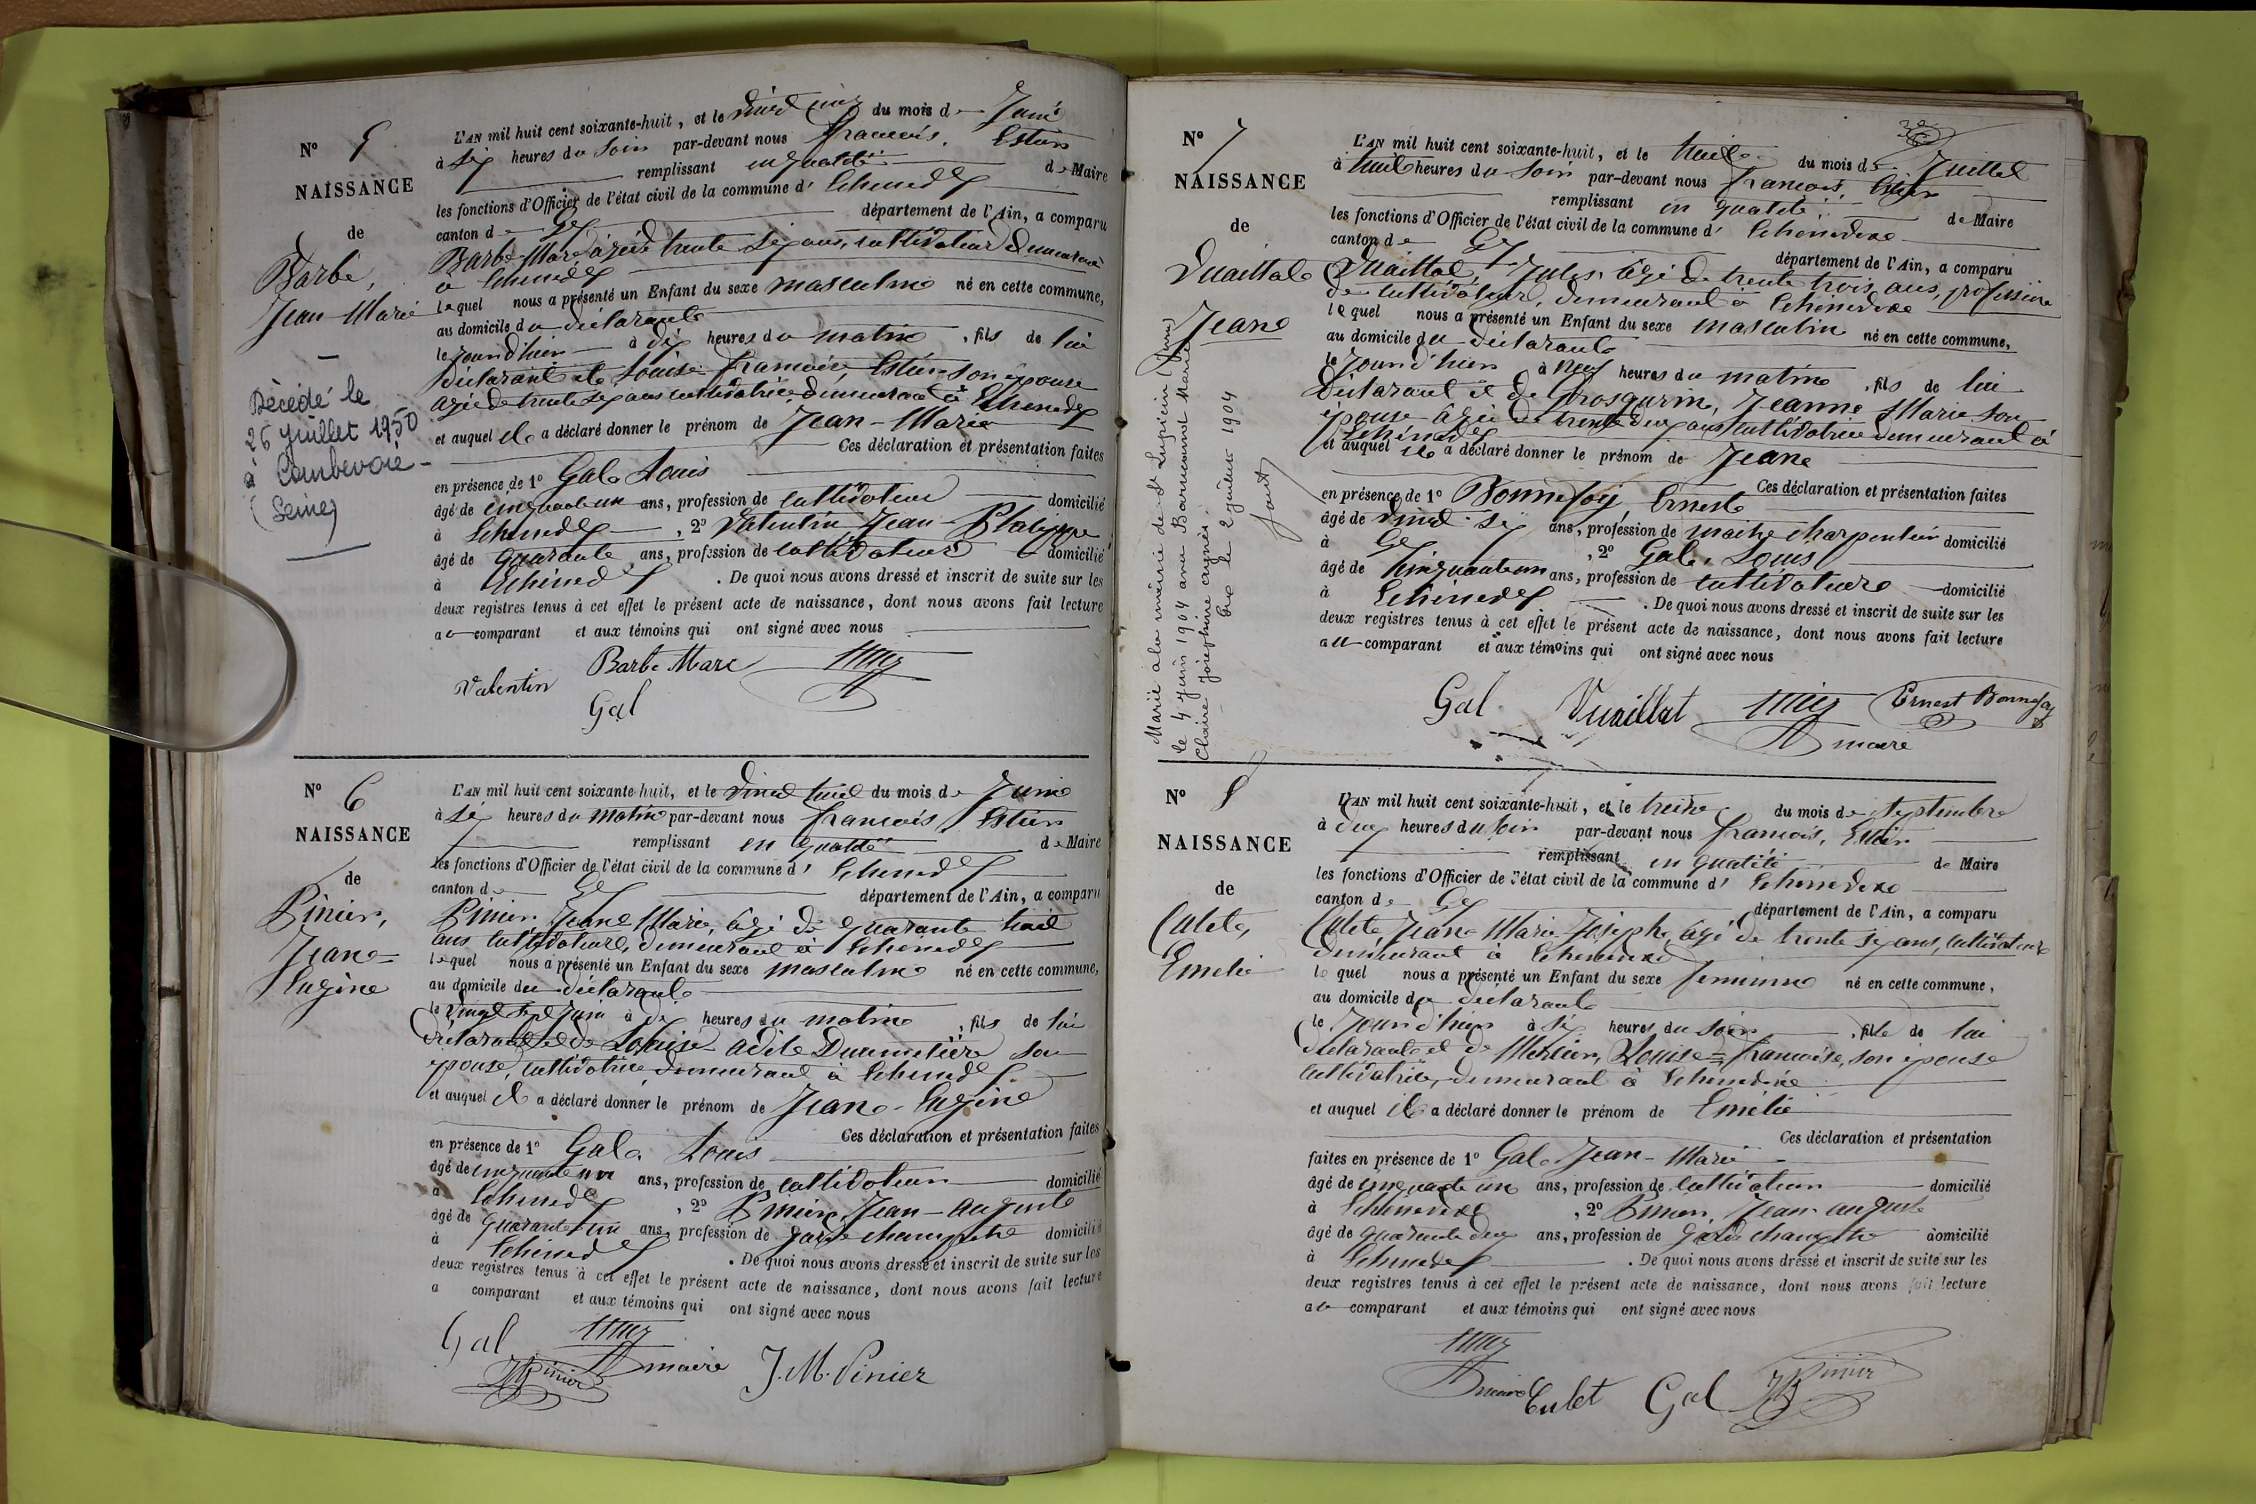 N° 5
NAISSANCE
de
Barbe,
Jean-Marie
Décédé le
26 Juillet 1950
à Courbevoie
(Seine)
L'AN mil huit cent soixante-huit, et le du mois de Juin
à six heures du Soir par-devant nous françois, Estier
remplissant en qualité de Maire
les fonctions d'Officier de l'état civil de la commune d' Echenevex
canton de Gex département de l'Ain, a comparu
Barbe Marc âgé de trente six ans, cultivateur demeurant
à Echenevex
lequel nous a présenté un Enfant du sexe masculin né en cette commune,
au domicile du déclarant
le jourd'hier à dix heures du matin, fils de lui
déclarant et de Louise françoise Estier son épouse
agée de trente six ans cultivatrice, demeurant à Echenevex
et auquel il a déclaré donner le prénom de Jean-Marie
Ces déclaration et présentation faites
en présence de 1° Gal Louis
âgé de cinquante un ans, profession de cultivateur domicilié
à Echenevex, 2° Valentin Jean-Philippe
âgé de quarante ans, profession de cultivateur domicilié
à Echenevex. De quoi nous avons dressé et inscrit de suite sur les
deux registres tenus à cet effet le présent acte de naissance, dont nous avons fait lecture
au comparant et aux témoins qui ont signé avec nous
Valentin Barbe Marc
Gal
N° 6
NAISSANCE
de
Pinier,
Jean-
Eugène
L'AN mil huit cent soixante-huit, et le vingt huit du mois de Juin
à six heures du matin par-devant nous françois, Estier
remplissant en qualité de Maire
les fonctions d'Officier de l'état civil de la commune d' Echenevex
canton de Gex département de l'Ain, a comparu
Pinier Jean Marie, âgé de quarante huit
ans, cultivateur, demeurant à Echenevex
lequel nous a présenté un Enfant du sexe masculin né en cette commune,
au domicile du déclarant
le vingt sept juin à dix heures du matin, fils de lui
déclarant et de Louise Adèle son
épouse, cultivatrice demeurant à Echenevex
et auquel il a déclaré donner le prénom de Jean-Eugène
Ces déclaration et présentation faites
en présence de 1° Gal Louis
âgé de cinquante un ans, profession de cultivateur domicilié
à Echenevex, 2° Pinier, Jean-auguste
âgé de quarante un ans, profession de garde champetre domicilié
à Echenevex. De quoi nous avons dressé et inscrit de suite sur les
deux registres tenus à cet effet le présent acte de naissance, dont nous avons fait lecture
a comparant et aux témoins qui ont signé avec nous
Gal maire J. M. Pinier
Pinier
N° 7
NAISSANCE
de
Vuaillat
Jean
Marié à la mairie de St Lupicin (Jura)
le 4 Juin 1904 avec Marie
Claire Joséphine
Gex le 2 juillet 1904
L'AN mil huit cent soixante-huit, et le huit du mois de Juillet
à huit heures du Soir par-devant nous françois, Estier
remplissant en qualité de Maire
les fonctions d'Officier de l'état civil de la commune d' Echenevex
canton de Gex département de l'Ain, a comparu
Vuaillat, Jules âgé de trente trois ans, profession
de cultivateur, demeurant à Echenevex
lequel nous a présenté un Enfant du sexe masculin né en cette commune,
au domicile du déclarant
le jourd'hier à neuf heures du matin, fils de lui
déclarant et de Grosgurin, Jeanne Marie son
épouse âgée de trente deux ans cultivatrice demeurant à
Echenevex
et auquel il a déclaré donner le prénom de Jean
Ces déclaration et présentation faites
en présence de 1° Bonnefoy Ernest
âgé de vingt six ans, profession de maitre charpentier domicilié
à Gex, 2° Gal, Louis
âgé de cinquante un ans, profession de cultivateur domicilié
à Echenevex. De quoi nous avons dressé et inscrit de suite sur les
deux registres tenus à cet effet le présent acte de naissance, dont nous avons fait lecture
au comparant et aux témoins qui ont signé avec nous
Gal Vuaillat Ernest Bonnefoy
maire
N° 8
NAISSANCE
de
Culet,
Emélie
L'AN mil huit cent soixante-huit, et le treize du mois de septembre
à deux heures du soir par-devant nous françois, Estier
remplissant en qualité de Maire
les fonctions d'Officier de l'état civil de la commune d' Echenevex
canton de Gex département de l'Ain, a comparu
Culet Jean Marie Joseph, âgé de trente six ans, cultivateur
demeurant à Echenevex
lequel nous a présenté un Enfant du sexe feminin né en cette commune,
au domicile du déclarant
le jourd'hier à six heures du soir, fille de lui
déclarant et de Mercier, Louise=françoise, son épouse
cultivatrice, demeurant à Echenevex
et auquel il a déclaré donner le prénom de Emélie
Ces déclaration et présentation
faites en présence de 1° Gal Jean-Marie
âgé de cinquante un ans, profession de cultivateur domicilié
à Echenevex, 2° Pinier, Jean auguste
âgé de quarante deux ans, profession de garde champetre domicilié
à Echenevex. De quoi nous avons dressé et inscrit de suite sur les
deux registres tenus à cet effet le présent acte de naissance, dont nous avons fait lecture
au comparant et aux témoins qui ont signé avec nous
maire Culet Gal Pinier